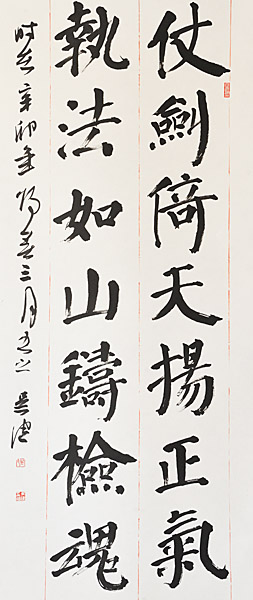 仗劍倚天揚正氣
執法如山鑄檢魂
时在辛卯年阳春三月